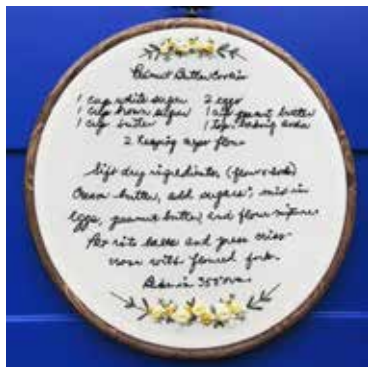 Peanut Butter Cookies
1 cup white sugar 2 eggs
1 cup brown sugar 1 cup peanut butter
1 cup butter 1 tsp. baking soda
2 heaping cups flour
Sift dry ingredients (flour & soda)
Cream butter, add sugars; mix in
eggs, peanut butter, and flour mixture
into balls and press criss-
cross with floured fork.
Bake in 350° oven